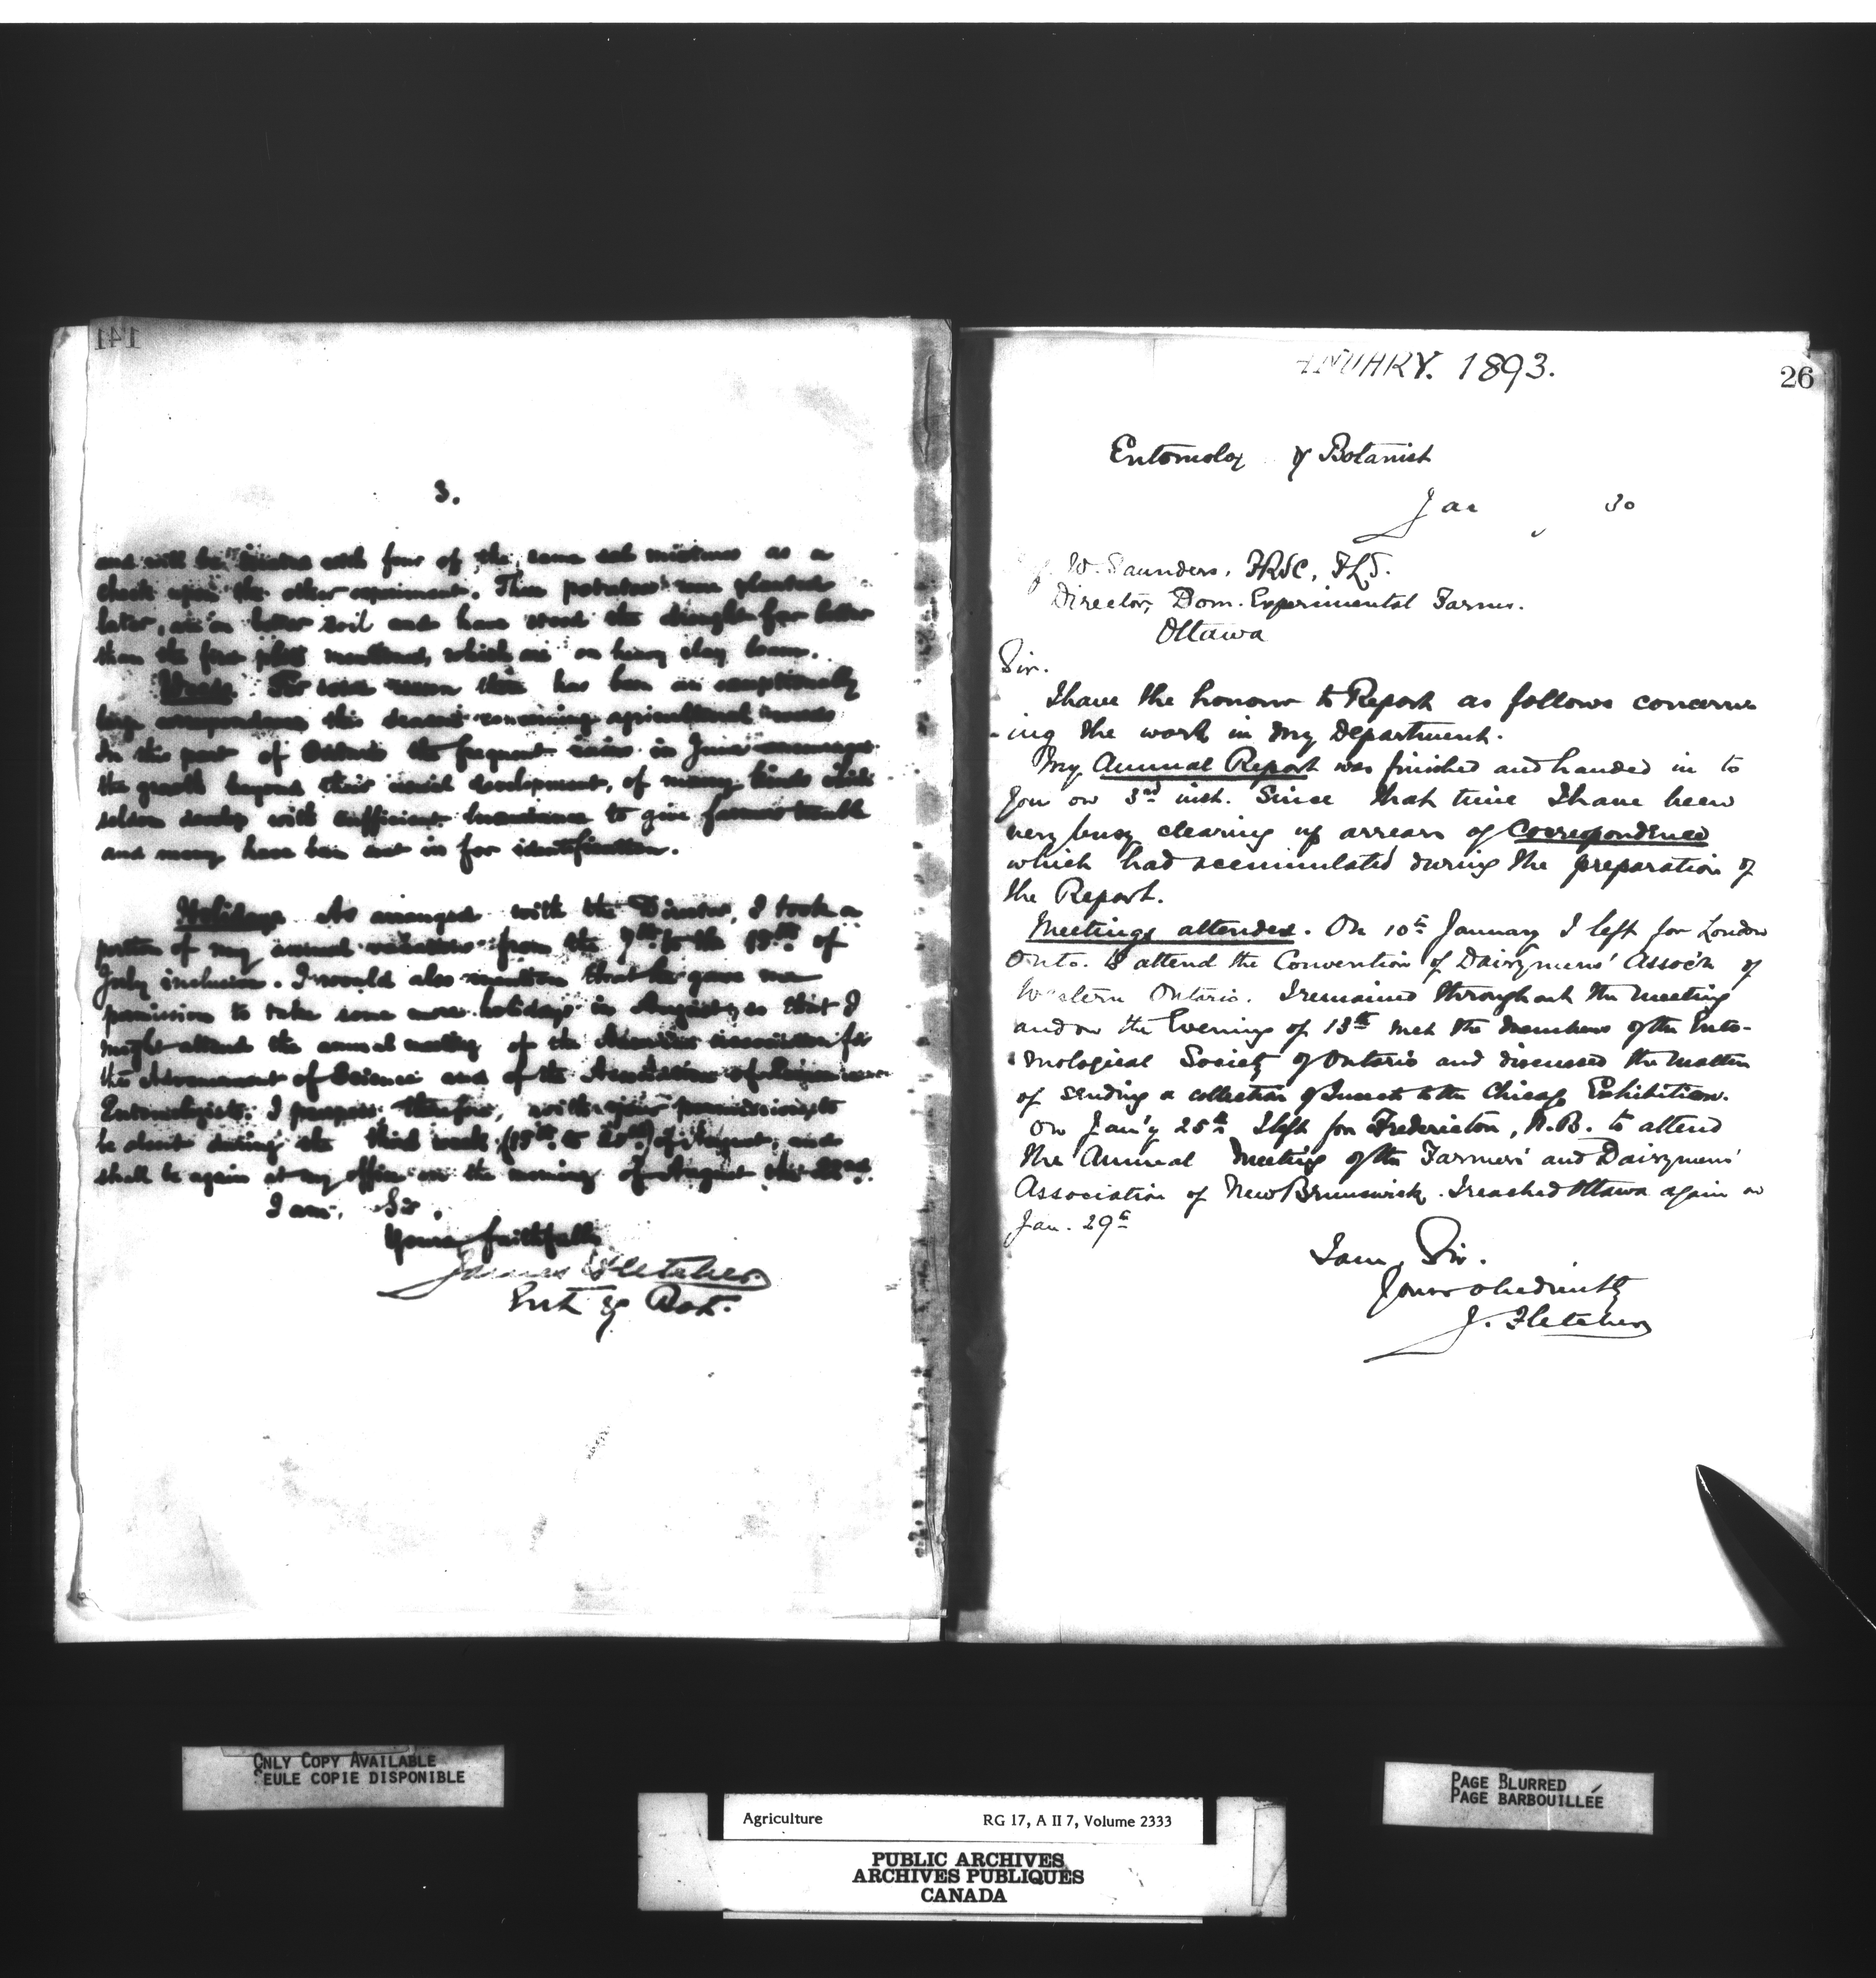 141
3.
and will be treated with four of the same mixtures as a
check upon the other experiment. These potatoes were planted
later, are on better soil and have stood the drought far better
than the four plots mentioned, which are on heavy clay loam.
Weeds. For some reason there has been an exceptionally
large correspondence this season concerning agricultural weeds
In this part of Ontario the frequent rains in June encouraged
the growth beyond their usual development, of many kinds which
seldom develop with sufficient to give farmers trouble
and many have been sent in for identification.
Holidays. As arranged with the Director, I took a
portion of my annual from the 7th to the 19th of
July inclusive. I would also mention that he gave me
permission to take some more holidays in August, so that I
might attend the annual meeting of the American Association for
the Advancement of Science and of the Association of
Entomologists. I propose therefore, with your permission, to
be absent during the third week of August, and
shall be again at my office on the morning of August the 22nd.
I am, Sir,
Yours faithfully
James Fletcher
Ent. & Bot.
ANUARY. 1893.
26
Entomolog & Botanist
Jan 30
W. Saunders, FRSC, FLS.
Director, Dom. Experimental Farms.
Ottawa
Sir.
I have the honour to Report as follows concern
-ing the work in my Department.
My Annual Report was finished and handed in to
you on 3rd inst. Since that time I have been
very busy clearing up arrears of Correspondence
which had accumulated during the preparation of
the Report.
Meetings attended. On 10th January I left for London
Onto. to attend the Convention of Dairymens' Assocn of
Western Ontario. I remained throughout the meeting
and on the Evening of 13th met the members of the Ento-
mological Society of Ontario and discussed the matter
of sending a collection of Insects to the Chicago Exhibition.
On Jan'y 25th I left for Fredericton, N.B. to attend
the Annual Meeting of the Farmers' and Dairymens'
Association of New Brunswick. I reached Ottawa again on
Jan. 29th
I am, Sir.
Yours obediently
J. Fletcher
ONLY COPY AVAILABLE
SEULE COPIE DISPONIBLE
PAGE BLURRED
PAGE BARBOUILLÉE
Agriculture RG 17, A II 7, Volume 2333
PUBLIC ARCHIVES
ARCHIVES PUBLIQUES
CANADA